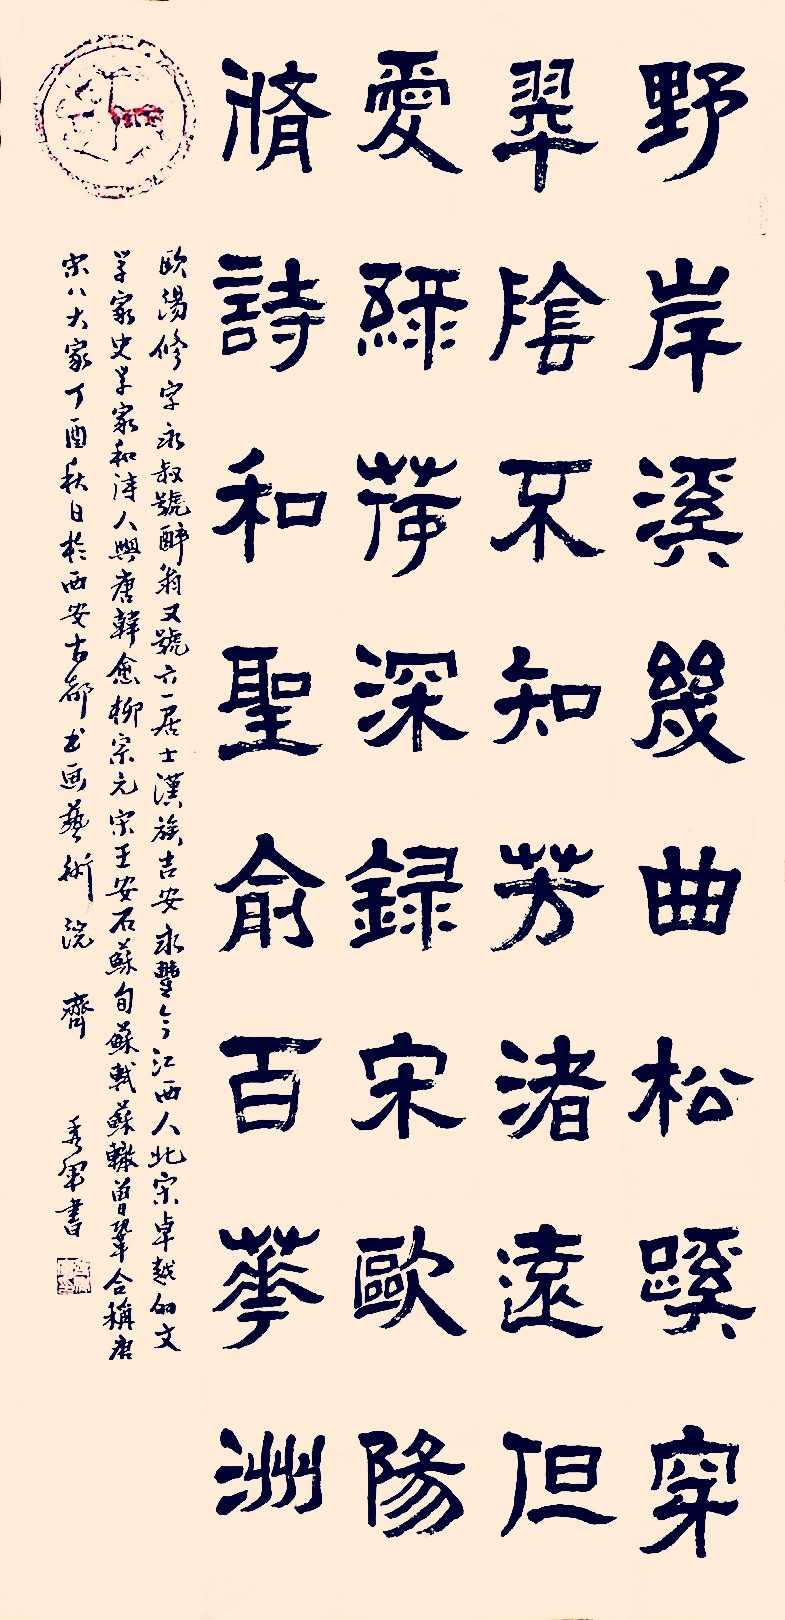 野岸溪幾曲松蹊穿
翠陰不知芳渚遠但
愛綠荷深錄宋歐陽
脩詩和聖俞百華洲
歐陽修字永叔號醉翁又號六一居士漢族吉安永豐今江西人北宋卓越的文
学家史学家和詩人與唐韓愈柳宗元宋王安石蘇旬蘇軾蘇轍曾鞏合稱唐
宋八大家丁酉秋日於西安古都书画藝術院 齊 秀軍書